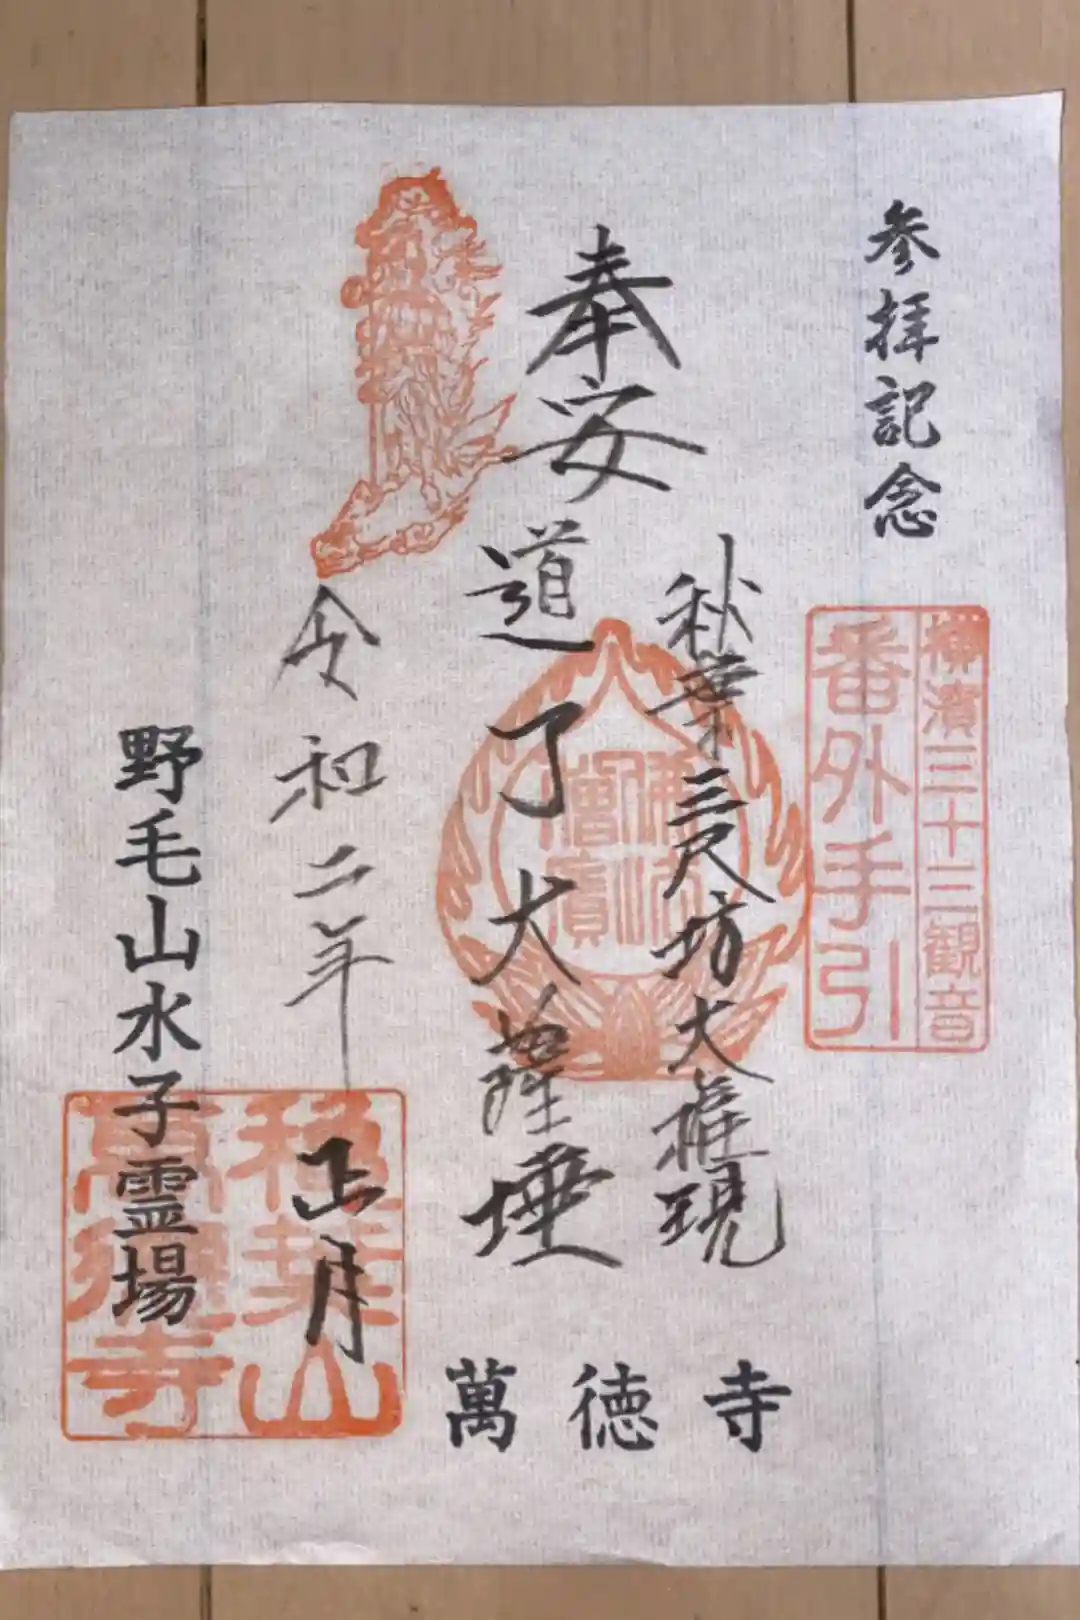 参拝記念
横濱三十三観音
番外手引
奉安
秋葉三尺坊大権現
道了大薩埵
佛法
僧寳
令和二年
正月
野毛山水子霊場
萬德寺
萬徳寺